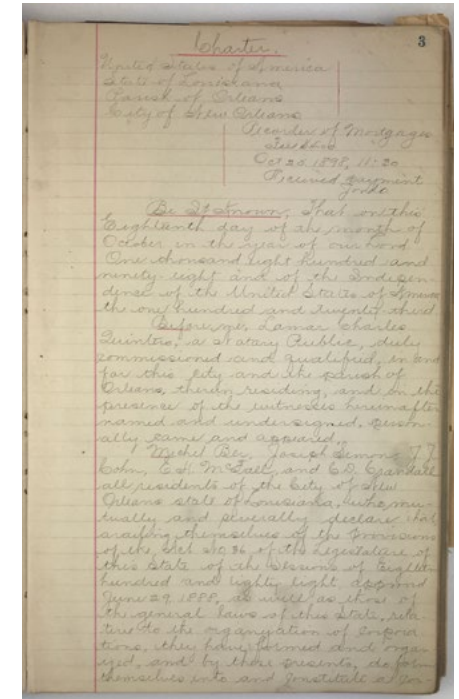 3
Charter.
United States of America
State of Louisiana
Parish of Orleans
City of New Orleans
Recorder of Mortgages
Oct 20 1898, 11:20
Received payment
Be It Known, That on this
Eighteenth day of the month of
October in the year of our Lord
One thousand eight hundred and
ninety-eight and of the Indepen-
dence of the United States of America
the one hundred and twenty third
Before me, Lamar Charles
Quintero, a Notary Public, duly
commissioned and qualified, in and
for this city and the parish of
Orleans, therein residing, and in the
presence of the witnesses hereinafter
named and undersigned, person-
ally came and appeared,
Michel Ber, Joseph Simons, J. J.
Cohn, E. H. and E. D.
all residents of the City of New
Orleans state of Louisiana, who mu-
tually and severally declare that
availing themselves of the provisions
of the Act No 36 of the Legislature of
this State of the sessions of Eighteen
hundred and eighty eight, approved
June 29 1888, as well as those of
the general laws of this State, rela-
tive to the organization of Corpora
tions, they have formed and organ
ized, and by these presents, do form
themselves into and constitute a